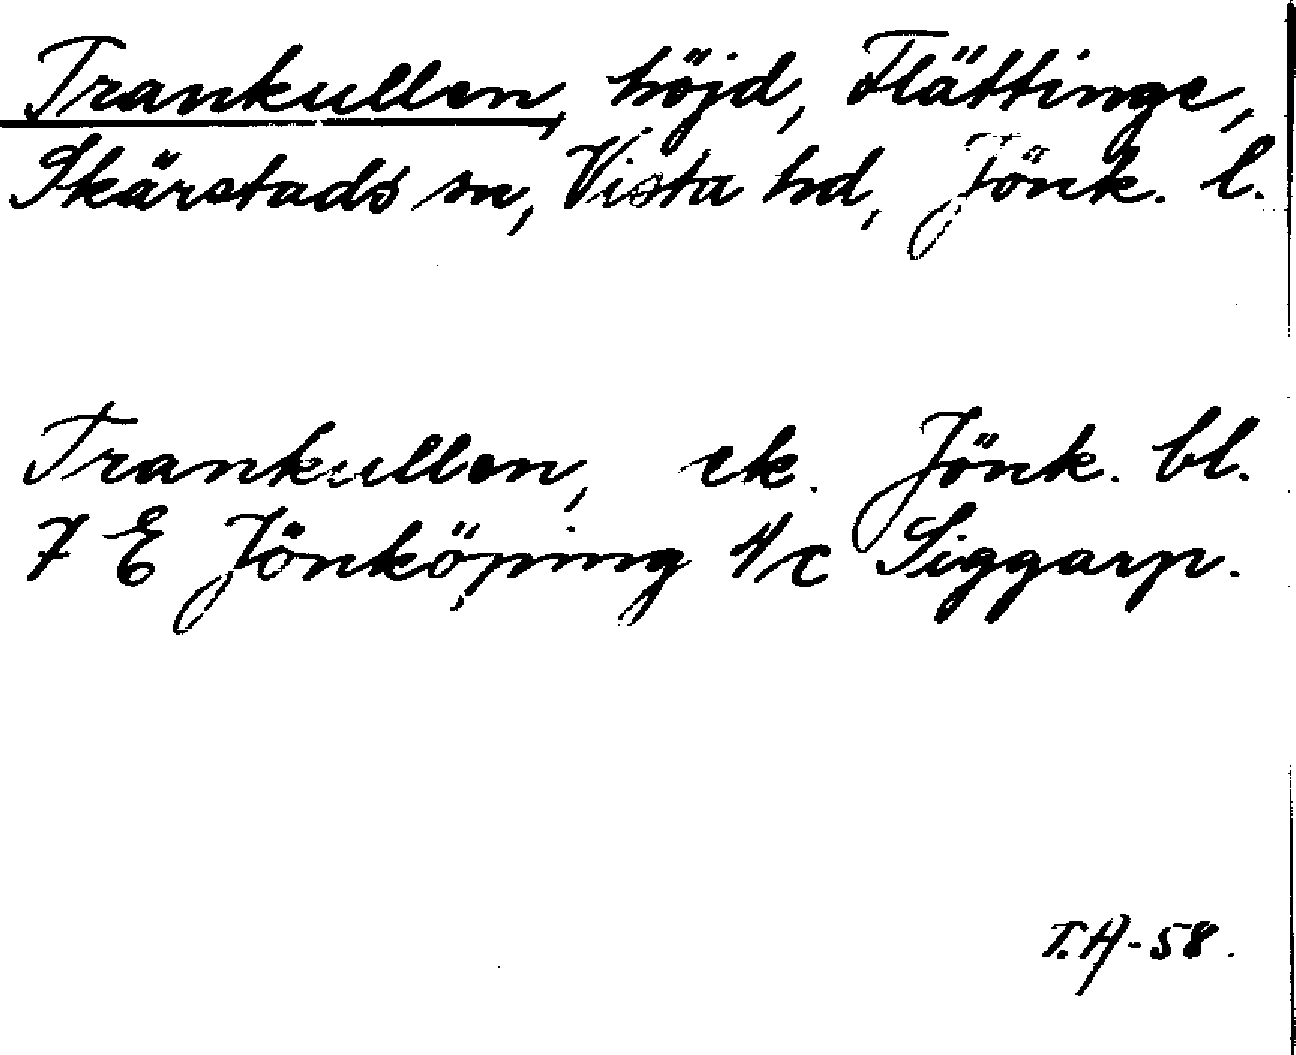 Trankullen, höjd, Flättinge,
Skärstads sn, Vista hd, Jönk. l.
Trankullen, ek. Jönk. bl.
7 E Jönköping 4/c Siggarp.
T.H-58.